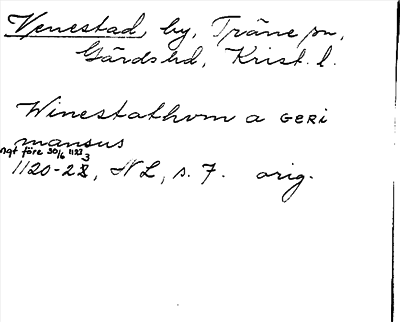 Venestad, by, Träne sn,
Gärds hd, Krist. l.
Winestathum a GERI
mansus
ngt före 30/6 1123
1120-23, NL, s. 7. orig.